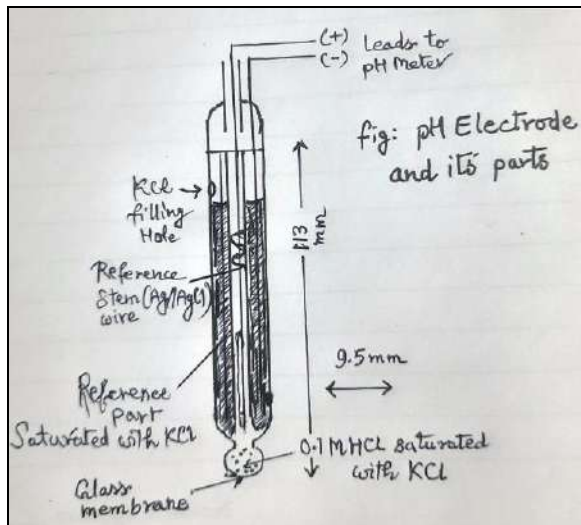 (+) Leads to
(-) pH Meter
fig: pH Electrode
and its parts
KCl
filling
Hole
113
mm
Reference
Stem (Ag/AgCl)
wire
9.5mm
Reference
part
Saturated with KCl
0.1 M HCl saturated
with KCl
Glass
membrane